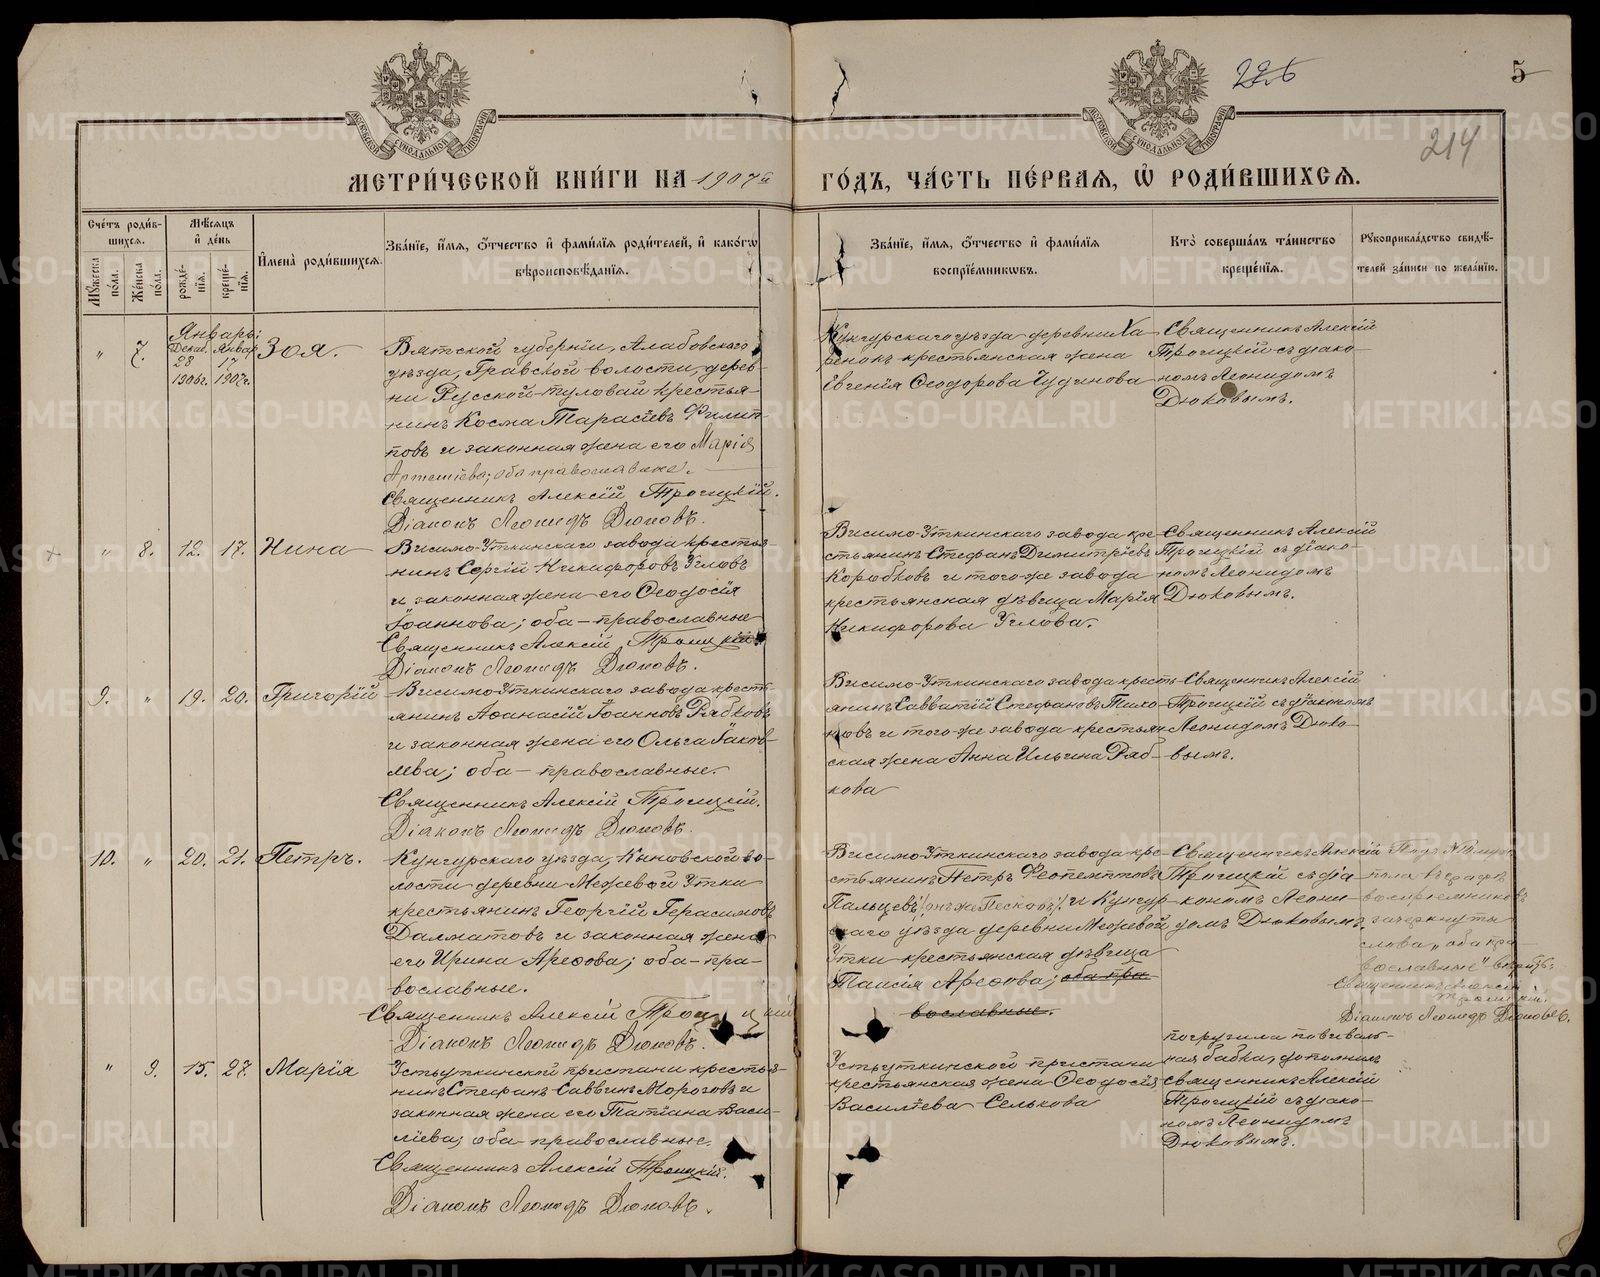 226
5
214
МОСКОВСКОЙ СѴНОДАЛЬНОЙ ТИПОГРАФІИ
МОСКОВСКОЙ СѴНОДАЛЬНОЙ ТИПОГРАФІИ
МЕТРИ́ЧЕСКОЙ КНИ́ГИ НА 1907й
ГО́ДЪ, ЧА́СТЬ ПЕ́РВАЯ, Ѡ҆ РОДИ́ВШИХСѦ.
Сче́тъ роди́в-
шихсѧ.
Мꙋ́жеска по́ла.
Же́нска по́ла.
Мѣ́сѧцъ
и҆ де́нь
рожде́-
нїѧ.
креще́-
нїѧ.
И҆мена̀ роди́вшихсѧ.
Зва́нїе, и҆́мѧ, ѻ҆́тчество и҆ фами́лїѧ роди́телей, и҆ како́гѡ
вѣроисповѣ́данїѧ.
Зва́нїе, и҆́мѧ, ѻ҆́тчество и҆ фами́лїѧ
воспрїе́мникѡвъ.
Кто̀ соверша́лъ та́инство
креще́нїѧ.
Рꙋкоприкла́дство свидѣ́-
телей за́писи по жела́нїю.
Январь:
" 7.
Декаб. 28 1906г.
Январ 17 1907г.
Зоя.
Вятской губерніи,
уѣзда, волости, дерев-
ни Русской крестья-
нинъ Косма Тарасіевъ Филип-
повъ и законная жена его Марія
Артеміева; оба православные.
Священникъ Алексій Троицкій.
Діаконъ Леонидъ Дюковъ.
Кунгурскаго уѣзда деревни Ха-
ренокъ крестьянская жена
Евгенія Ѳеодорова Чудинова
Священникъ Алексій
Троицкій съ діако-
номъ Леонидомъ
Дюковымъ.
" 8. 12. 17. Нина
Висимо-Уткинскаго завода крестья-
нинъ Сергій Никифоровъ Угловъ
и законная жена его Ѳеодосія
Іоаннова; оба-православные
Священникъ Алексій Троицкій
Діаконъ Леонидъ Дюковъ.
Висимо-Уткинскаго завода кре-
стьянинъ Стефанъ Димитріевъ
Коробковъ и того же завода
крестьянская дѣвица Марія
Никифорова Углова.
Священникъ Алексій
Троицкій съ діако-
номъ Леонидомъ
Дюковымъ.
9. " 19. 20. Григорій
Висимо-Уткинскаго завода кресть-
янинъ Аѳанасій Іоанновъ Рябковъ
и законная жена его Ольга Іаков-
лева; оба-православные.
Священникъ Алексій Троицкій.
Діаконъ Леонидъ Дюковъ.
Висимо-Уткинскаго завода кресть-
янинъ Савватій Стефановъ
и того же завода крестьян-
ская жена Анна Ильина Ряб-
кова
Священникъ Алексій
Троицкій съ діакономъ
Леонидомъ Дюко-
вымъ.
10. " 20. 21. Петръ.
Кунгурскаго уѣзда, Кыновской во-
лости деревни Межевой Утки
крестьянинъ Георгій Герасимовъ
Далматовъ и законная жена
его Ирина Ареѳова; оба-пра-
вославные.
Священникъ Алексій Троицкій
Діаконъ Леонидъ Дюковъ.
Висимо-Уткинскаго завода кре-
стьянинъ Петръ Ѳеопемптовъ
Пальцевъ /онъ же Песковъ/ и Кунгур-
скаго уѣзда деревни Межевой
Утки крестьянская дѣвица
Таисія Ареѳова; оба пра
вославные.
Священникъ Алексій
Троицкій съ діа-
кономъ Леони-
домъ Дюковымъ.
Подъ №10 муж.
пола въ графѣ
воспріемниковъ
зачеркнуты
слова „оба пра-
вославные"
Священникъ Алексій
Троицкій.
Діаконъ Леонидъ Дюковъ.
" 9. 15. 27. Марія
Устьуткинской пристани крестья-
нинъ Стефанъ Саввинъ Морозовъ и
законная жена его Татіана Васи-
ліева; оба-православные.
Священникъ Алексій Троицкій.
Діаконъ Леонидъ Дюковъ.
Устьуткинской пристани
крестьянская жена Ѳеодосія
Василіева Селькова
погрузила повиваль-
ная бабка, дополнилъ
священникъ Алексій
Троицкій съ діако-
номъ Леонидомъ
Дюковымъ.
METRIKI.GASO-URAL.RU